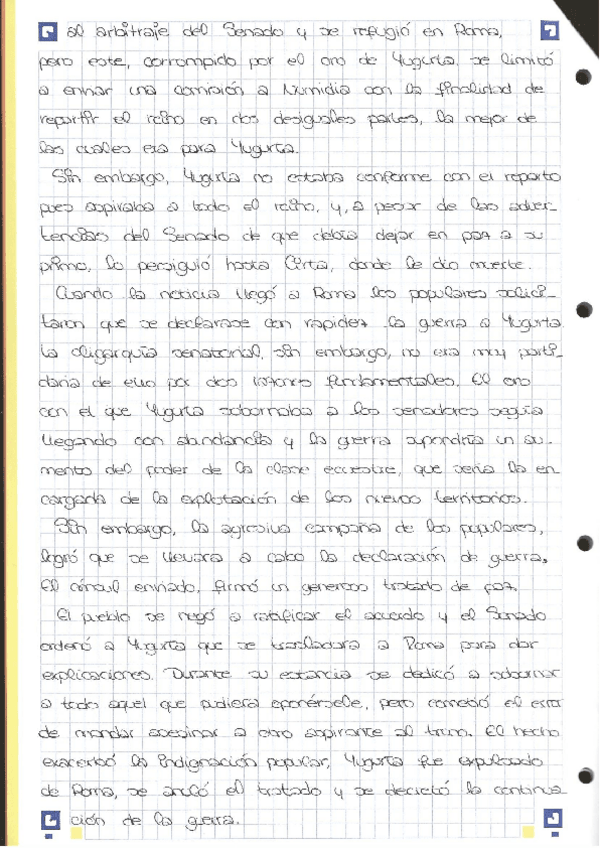 al arbitraje del Senado y se refugió en Roma,
pero este, corrompido por el oro de Yugurta, se limitó
a enviar una comisión a Numidia con la finalidad de
repartir el reino en dos desiguales partes, la mejor de
las cuales era para Yugurta.
Sin embargo, Yugurta no estaba conforme con el reparto
pues aspiraba a todo el reino, y, a pesar de las adver-
tencias del Senado de que debía dejar en paz a su
primo, lo persiguió hasta Cirta, donde le dio muerte.
Cuando la noticia llegó a Roma los populares solici-
taron que se declarase con rapidez la guerra a Yugurta
la oligarquía senatorial, sin embargo, no era muy parti-
daria de ello por dos razones fundamentales. El oro
con el que Yugurta sobornaba a los senadores seguía
llegando con abundancia y la guerra supondría un au-
mento del poder de la clase ecuestre, que sería la en-
cargada de la explotación de los nuevos territorios.
Sin embargo, la agresiva campaña de los populares,
logró que se llevara a cabo la declaración de guerra,
El cónsul enviado, firmó un generoso tratado de paz.
El pueblo se negó a ratificar el acuerdo y el Senado
ordenó a Yugurta que se trasladara a Roma para dar
explicaciones. Durante su estancia se dedicó a sobornar
a todo aquel que pudiera oponérsele, pero cometió el error
de mandar asesinar a otro aspirante al trono. El hecho
exacerbó la indignación popular, Yugurta fue expulsado
de Roma, se anuló el tratado y se decretó la continua
ción de la guerra.